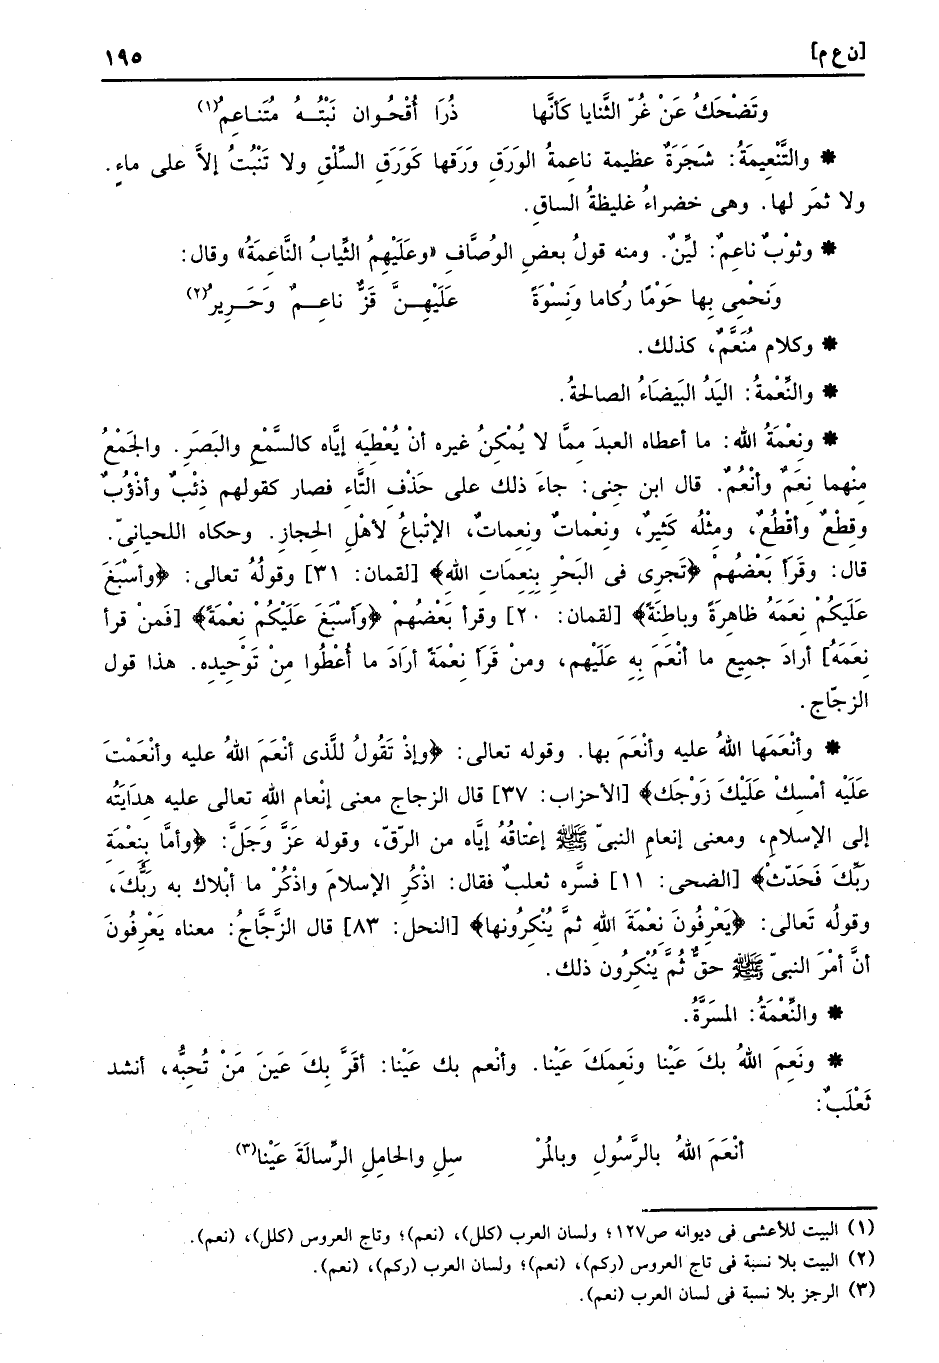 [ن ع م] ١٩٥
وتَضْحَكُ عَنْ غُرّ الثَّنايا كَأنَّها ذُرَا أُقْحُـوان نَبْتُــهُ مُتَنـاعِمُ(١)
* والتَّنْعِيمَةُ: شَجَرَةٌ عظيمة ناعمةُ الوَرَقِ وَرَقها كَوَرَقِ السِّلْقِ ولا تَنْبُتُ إلاَّ على ماءٍ.
ولا ثمَر لها. وهى خضراءُ غليظةُ الساقِ.
* وثوْبٌ ناعمٌ: ليِّنٌ. ومنه قولُ بعضِ الوُصَّافِ «وعَلَيْهِمُ الثِّيابُ النَّاعمَةُ» وقال:
وَنَحْمِى بِها حَوْمًا رُكاما وَنِسْوَةً عَلَيْهِــنَّ قَزٌّ ناعِــمٌ وَحَــرِيرُ(٢)
* وكلام مُنَعَّمٌ، كذلك.
* والنِّعْمةُ: اليَدُ البَيضَاءُ الصالحةُ.
* ونعْمَةُ الله: ما أعطاه العبدَ مِمَّا لا يُمْكِنُ غيره أنْ يُعْطِيَه إيَّاه كالسَّمْعِ والبَصَرِ. والجَمْعُ
مِنْهما نِعَمٌ وأنْعُمٌ. قال ابن جنى: جاءَ ذلك على حَذْفِ التَّاءِ فصار كقولهم ذِئْبٌ وأذْؤُبٌ
وقِطْعٌ وأقْطُعٌ، ومثْلُه كَثِيرٌ، ونِعْماتٌ ونِعِماتٌ، الإتْباعُ لأهْلِ الحجازِ. وحكاه اللحيانىّ.
قال: وقَرَأ بَعْضُهُمْ ﴿تَجرِى فى البَحْرِ بِنِعِمَاتِ الله﴾ [لقمان: ٣١] وقولُهُ تعالى: ﴿وأسْبَغَ
عَلَيكُمْ نِعَمَهُ ظاهِرَةً وباطنَةً﴾ [لقمان: ٢٠] وقرأ بَعْضُهم ﴿وَأسْبَغَ عَلَيْكُمْ نعْمَةً﴾ [فَمنْ قرأ
نِعَمَهُ] أرادَ جميع ما أنْعَمَ بِهِ عَلَيْهم، ومنْ قَرَأَ نِعْمَةً أرَادَ ما أُعْطُوا مِنْ تَوْحِيدِه. هذا قول
الزجّاج.
* وأنْعَمَها اللهُ عليه وأنْعَمَ بها. وقوله تعالى: ﴿وإذْ تَقُولُ للَّذى أنْعَمَ اللهُ عليه وأنْعَمْتَ
عَلَيْهِ أمْسِكْ عَلَيْكَ زَوْجَك﴾ [الأحزاب: ٣٧] قال الزجاج معنى إنْعامِ اللهِ تعالى عليه هِدَايَتُه
إلى الإسلامِ، ومعنى إنعامِ النبىّ ﷺ إعْتاقُهُ إيَّاه من الرّقّ، وقوله عَزَّ وَجَلَّ: ﴿وأمَّا بِنِعْمَةِ
رَبِّكَ فَحَدّث﴾ [الضحى: ١١] فسَّره ثعلبٌ فقال: اذْكُرِ الإسلامَ واذْكُرْ ما أبْلاك به رَبُّكَ،
وقولُه تَعالى: ﴿يَعْرِفُونَ نِعْمَةَ اللهِ ثمَّ يُنْكِرُونها﴾ [النحل: ٨٣] قال الزَّجَّاجُ: معناه يَعْرِفُونَ
أنَّ أمْرَ النبىّ ﷺ حقٌّ ثُمَّ يُنْكِرُون ذلك.
* والنِّعْمَةُ: المسَرَّةُ.
* ونَعِمَ اللهُ بكَ عَيْنا ونَعِمَكَ عَيْنا. وأنْعم بك عَيْنا: أقَرَّ بِكَ عَينَ مَنْ تُحِبُّه، أنشد
ثَعْلَبٌ:
أنْعَمَ اللهُ بالرَّسُولِ وبالمُرْ سِلِ والحامِلِ الرِّسالَةَ عَيْنا(٣)
(١) البيت للأعشى فى ديوانه ص١٢٧؛ ولسان العرب (كلل)، (نعم)؛ وتاج العروس (كلل)، (نعم).
(٢) البيت بلا نسبة فى تاج العروس (ركم)، (نعم)؛ ولسان العرب (ركم)، (نعم).
(٣) الرجز بلا نسبة فى لسان العرب (نعم).